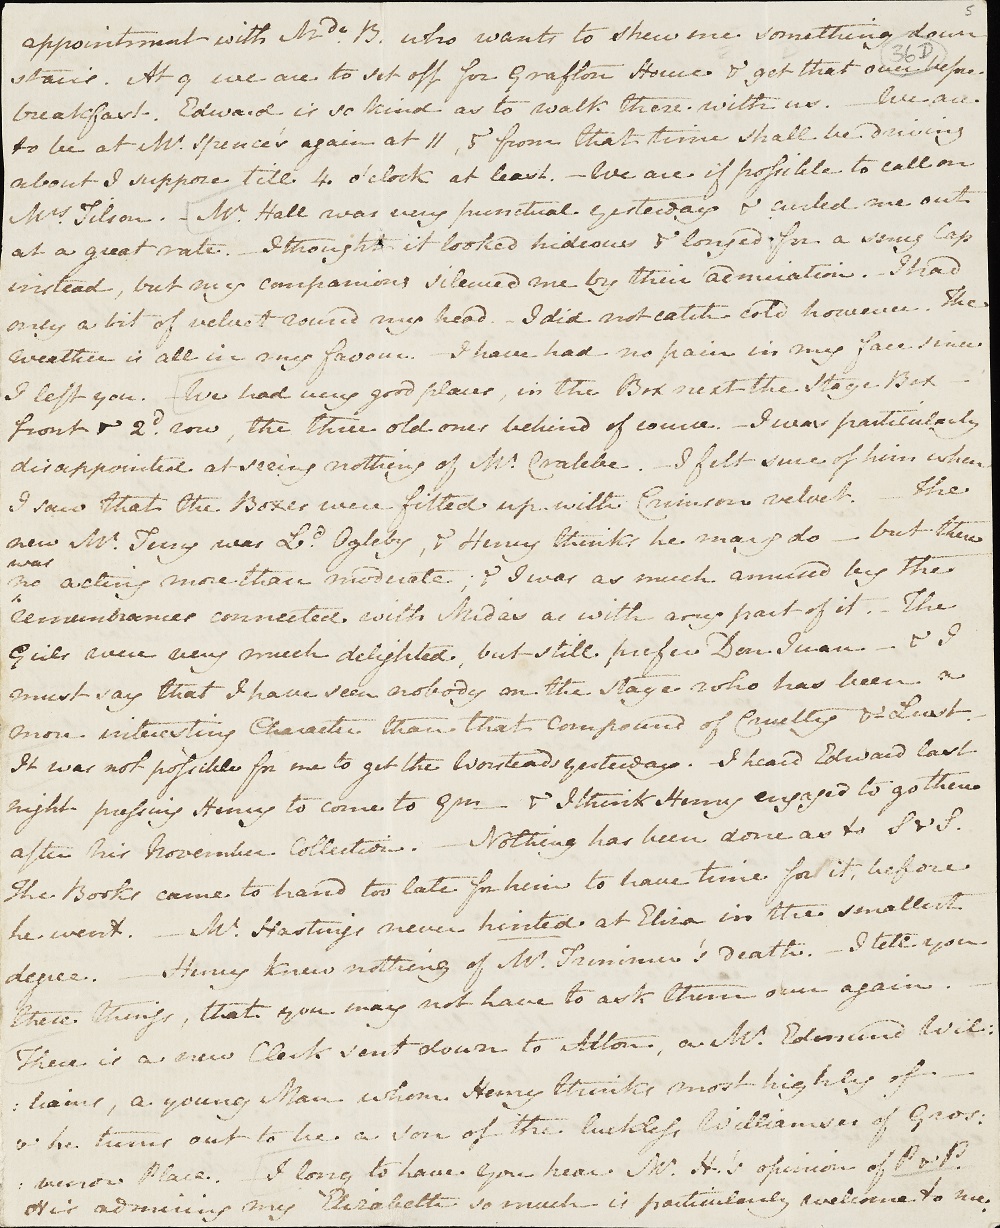 5
appointment with Mde. B. who wants to shew me something down
36 D
stairs. At 9 we are to set off for Grafton House & get that over before
breakfast. Edward is so kind as to walk there with us. — We are
to be at Mr. Spence's again at 11, & from that time shall be driving
about I suppose till 4 o'clock at least. — We are if possible to call on
Mrs. Tilson. — Mr. Hall was very punctual yesterday & curled me out
at a great rate. — I thought it looked hideous & longed for a snug Cap
instead, but my companions silenced me by their admiration. — I had
only a bit of velvet round my head. — I did not catch cold however. The
weather is all in my favour. — I have had no pain in my face since
I left you. — We had very good places, in the Box next the Stage Box —
front & 2d. row, the three old ones behind of course. — I was particularly
disappointed at seeing nothing of Mr. Crabbe. — I felt sure of him when
I saw that the Boxes were fitted up with Crimson velvet. The
new Mr. Terry was Ld. Ogleby, & Henry thinks he may do — but there
was
no acting more than moderate; & I was as much amused by the
remembrances connected with Midas as with any part of it. — The
Girls were very much delighted, but still prefer Don Juan — & I
must say that I have seen nobody on the stage who has been a
more interesting Character than that compound of Cruelty & Lust. —
It was not possible for me to get the Worsteads yesterday. — I heard Edward last
night pressing Henry to come to Gm — & I think Henry engaged to go there
after his November Collection. — Nothing has been done as to S & S.
The Books came to hand too late for him to have time for it, before
he went. — Mr. Hastings never hinted at Eliza in the smallest
degree. — Henry knew nothing of Mr. Trimmer's death. — I tell you
these things, that you may not have to ask them over again. —
There is a new Clerk sent down to Alton, a Mr. Edmund Wil:
:liams, a young Man whom Henry thinks most highly of —
& he turns out to be a son of the luckless Williamses of Gros:
:venor Place. I long to have you hear Mr. H's opinion of P & P.
His admiring my Elizabeth so much is particularly welcome to me.